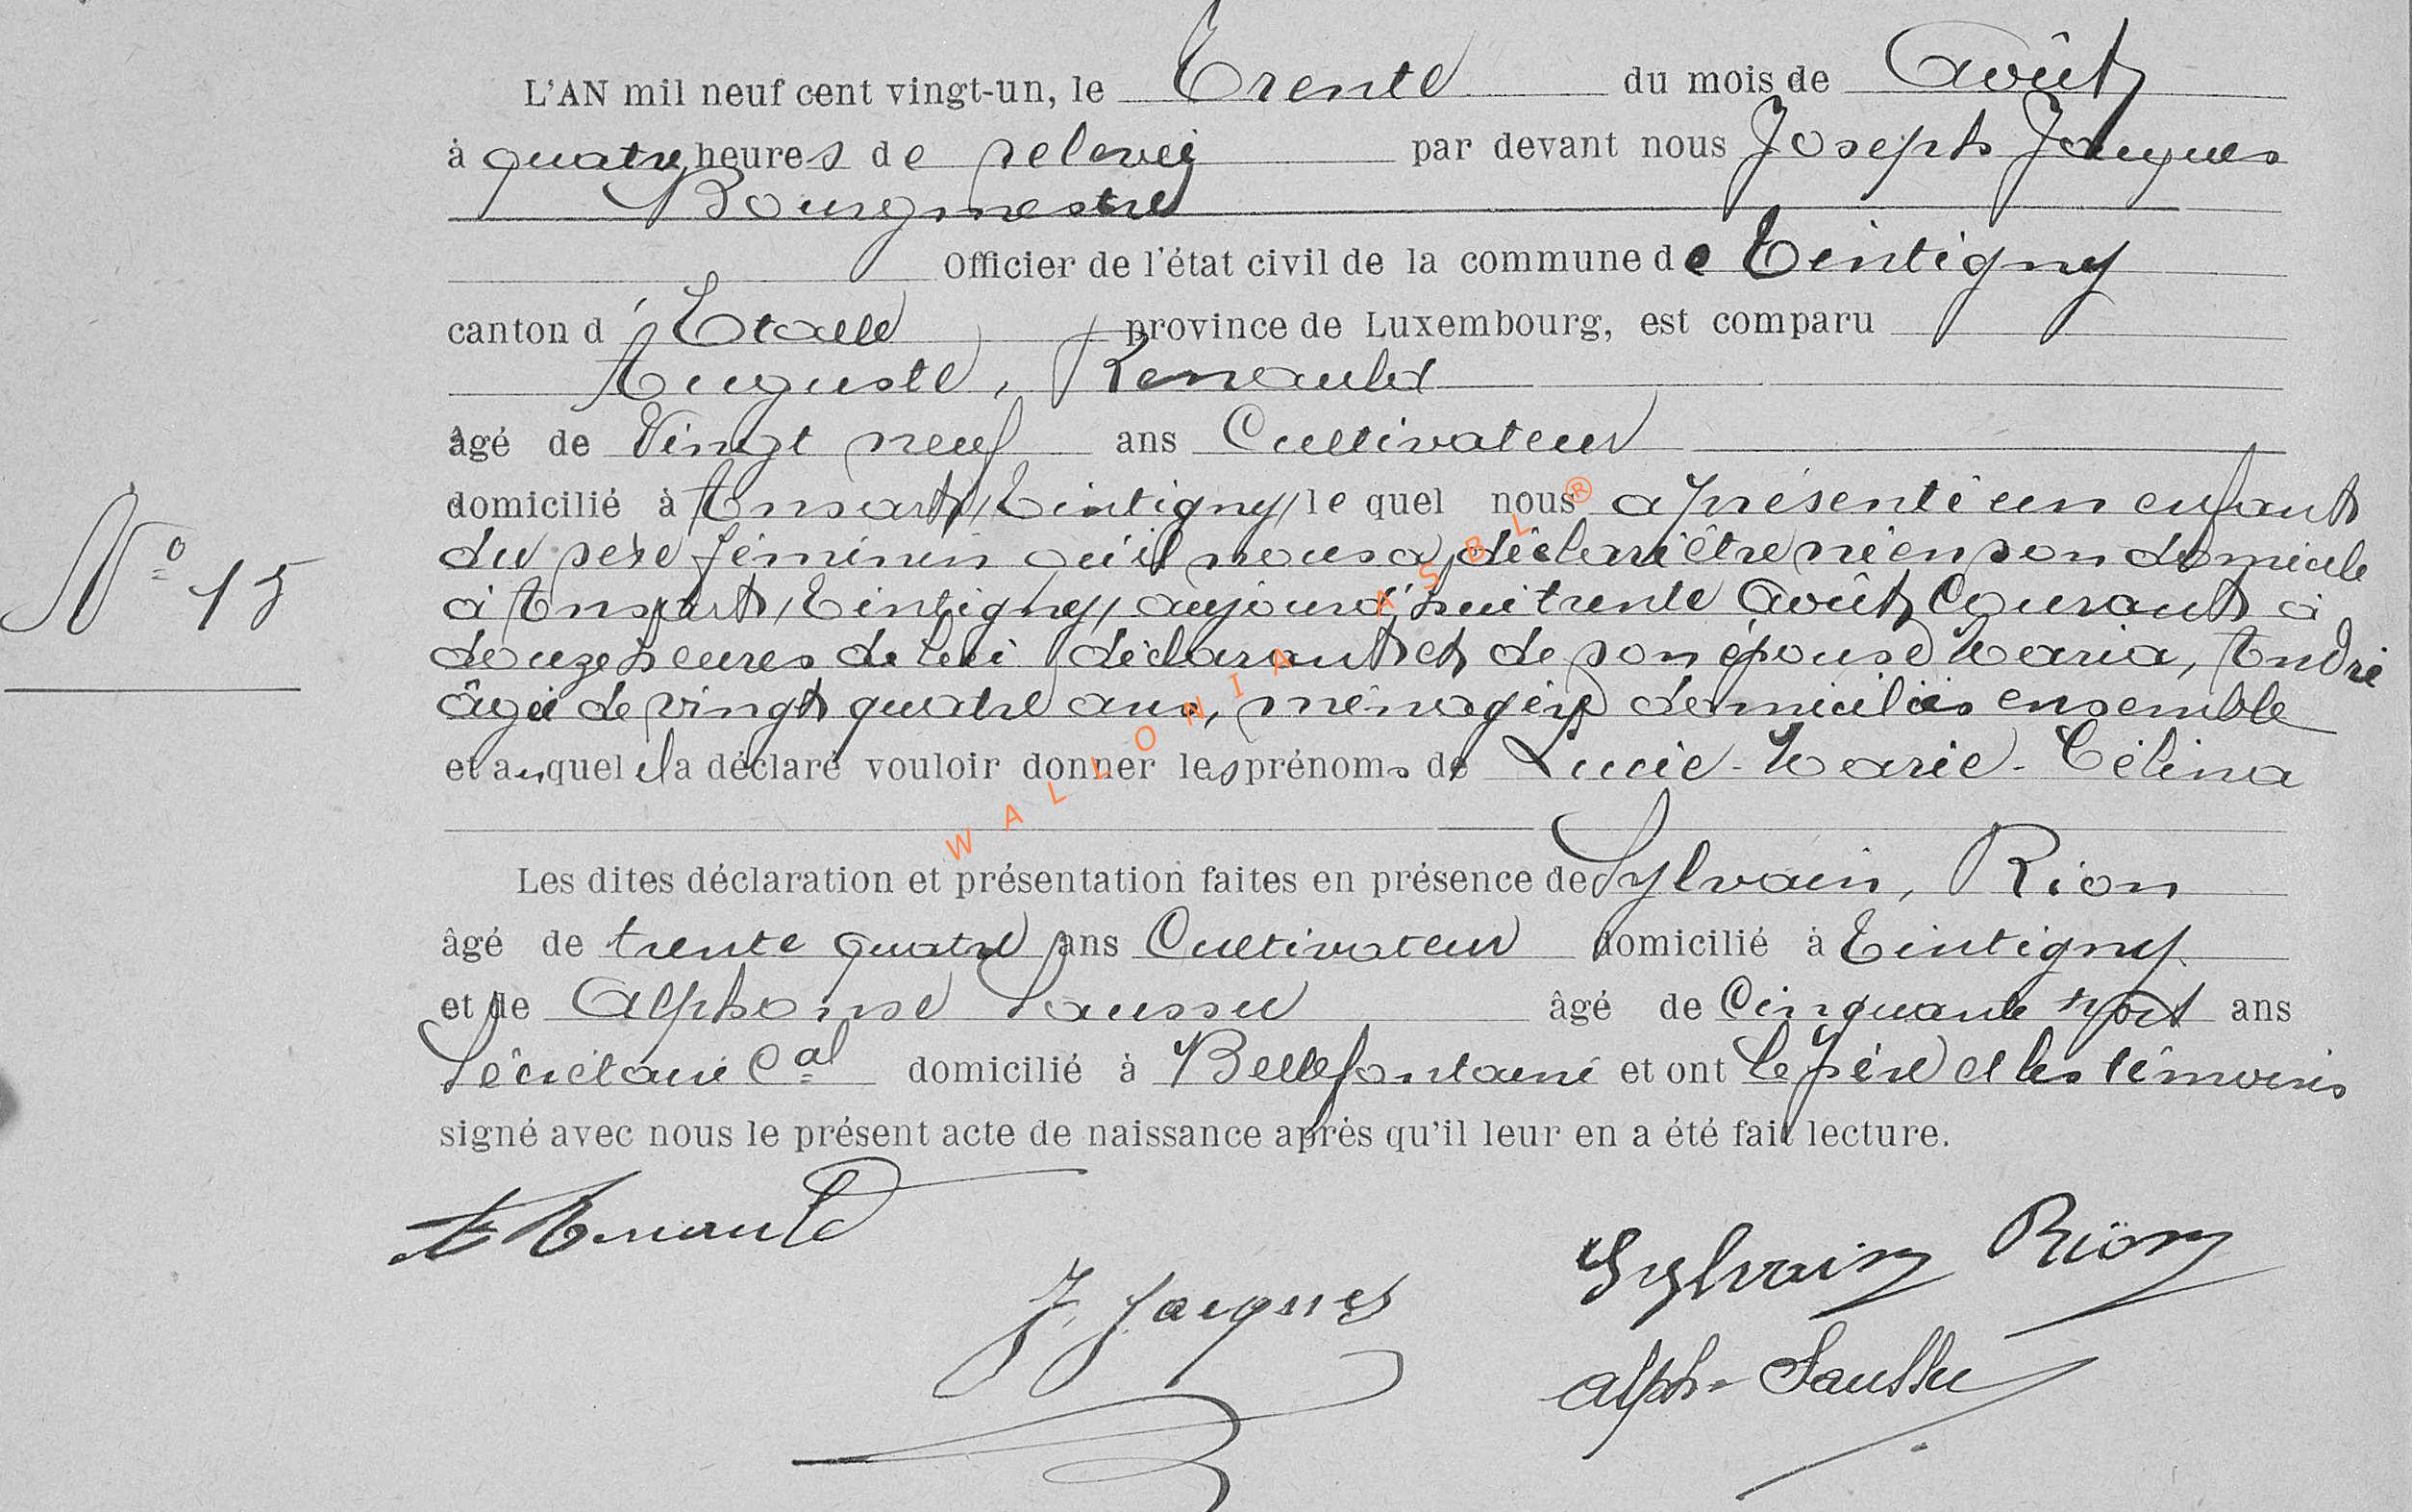 L'AN mil neuf cent vingt-un, le Trente du mois de Août
à quatre heures de relevée par devant nous Joseph Jacques
Bourgmestre
Officier de l'état civil de la commune de Tintigny
canton d'Etalle province de Luxembourg, est comparu
Auguste, Renauld
âgé de Vingt neuf ans Cultivateur
domicilié à Ansart /Tintigny/ lequel nous a présenté un enfant
N° 15
du sexe féminin qu'il nous a déclaré être né en son domicile
à Ansart /Tintigny/ aujourd'hui trente Août Courant à
douze heures de lui déclarant et de son épouse Maria, André
âgée de vingt quatre ans, ménagère domiciliés ensemble
et auquel il a déclaré vouloir donner les prénoms de Lucie-Marie-Célina
Les dites déclaration et présentation faites en présence de Sylvain, Rion
âgé de trente quatre ans Cultivateur domicilié à Tintigny
et de Alphonse Saussu âgé de Cinquante sept ans
Secrétaire Cal domicilié à Bellefontaine et ont le père et les témoins
signé avec nous le présent acte de naissance après qu'il leur en a été fait lecture.
A Renauld
J. Jacques
Sylvain Rion
Alph. Saussu
WALLONIA ASBL®